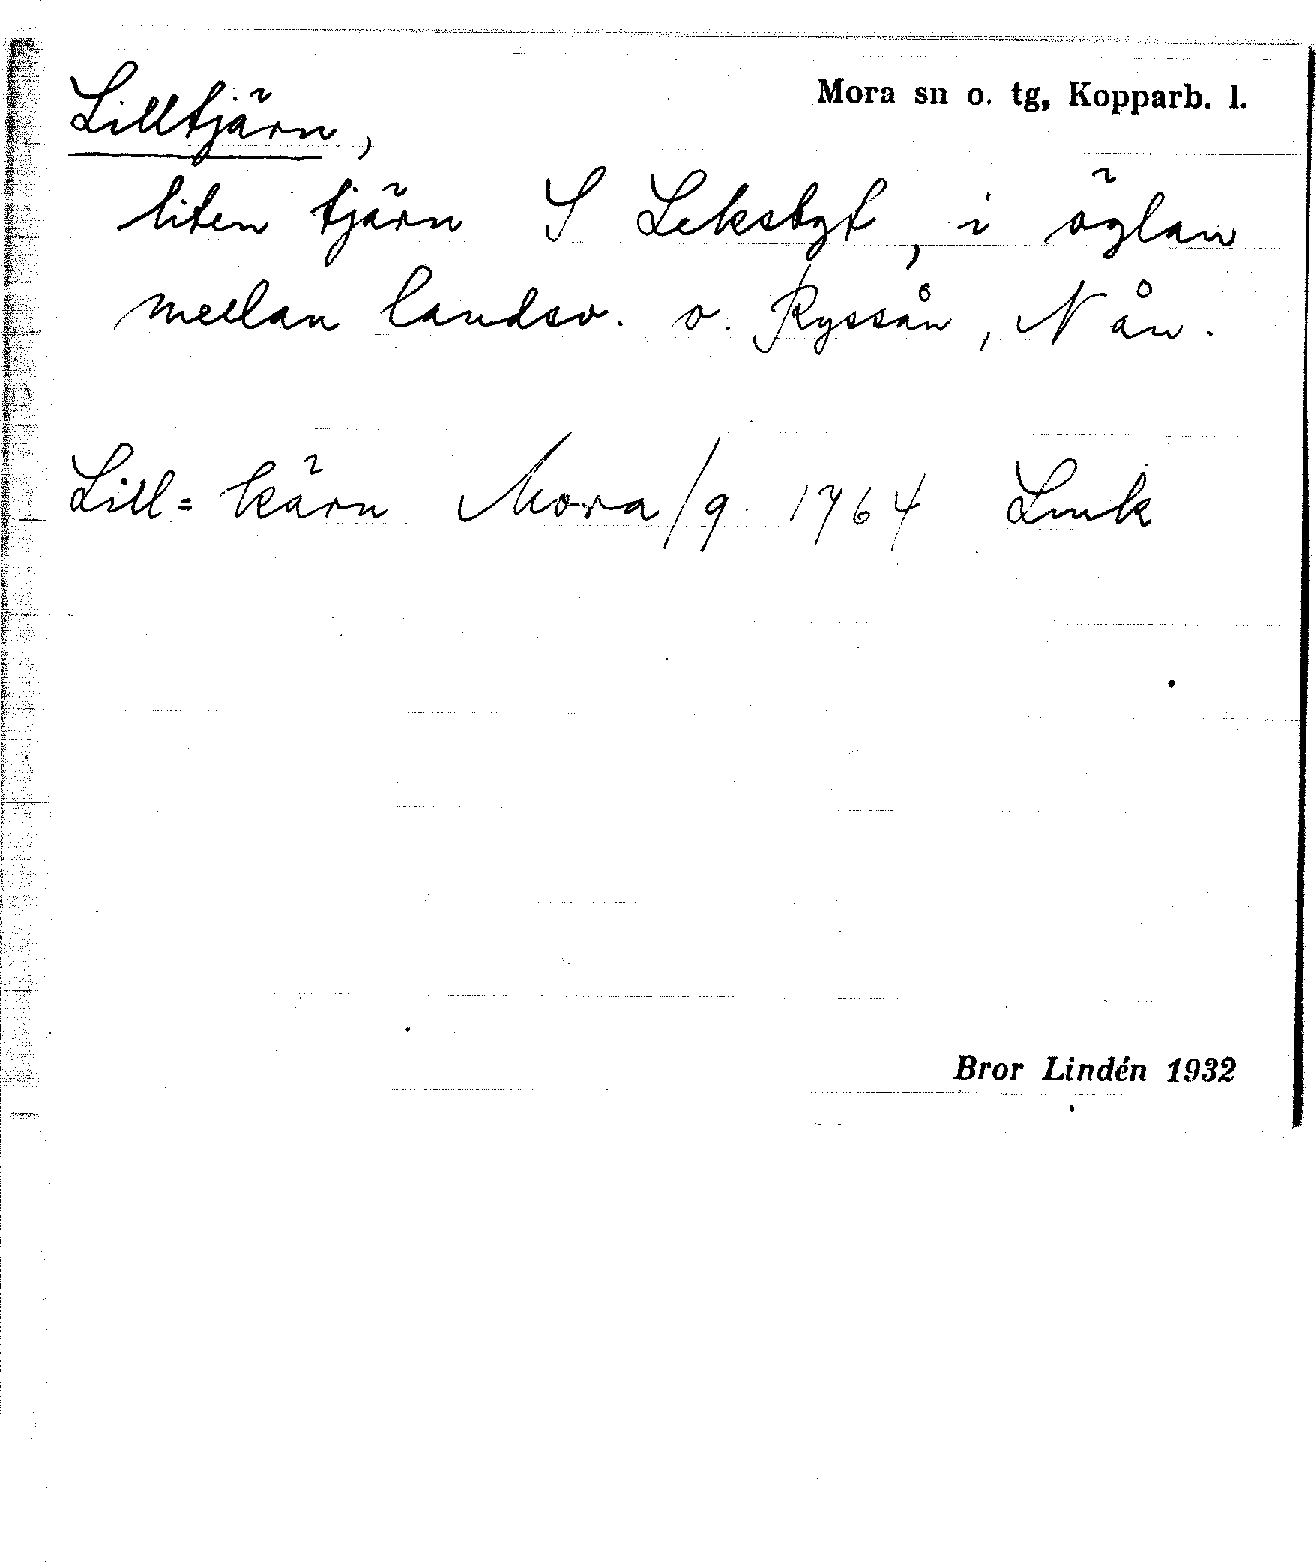 Mora sn o. tg, Kopparb. l.
Lilltjärn,
liten tjärn S Leksbgt, i öglan
mellan landsv. o. Ryssån, N ån.
Lill= kärn Mora/9 1764 Lmk
Bror Lindén 1932